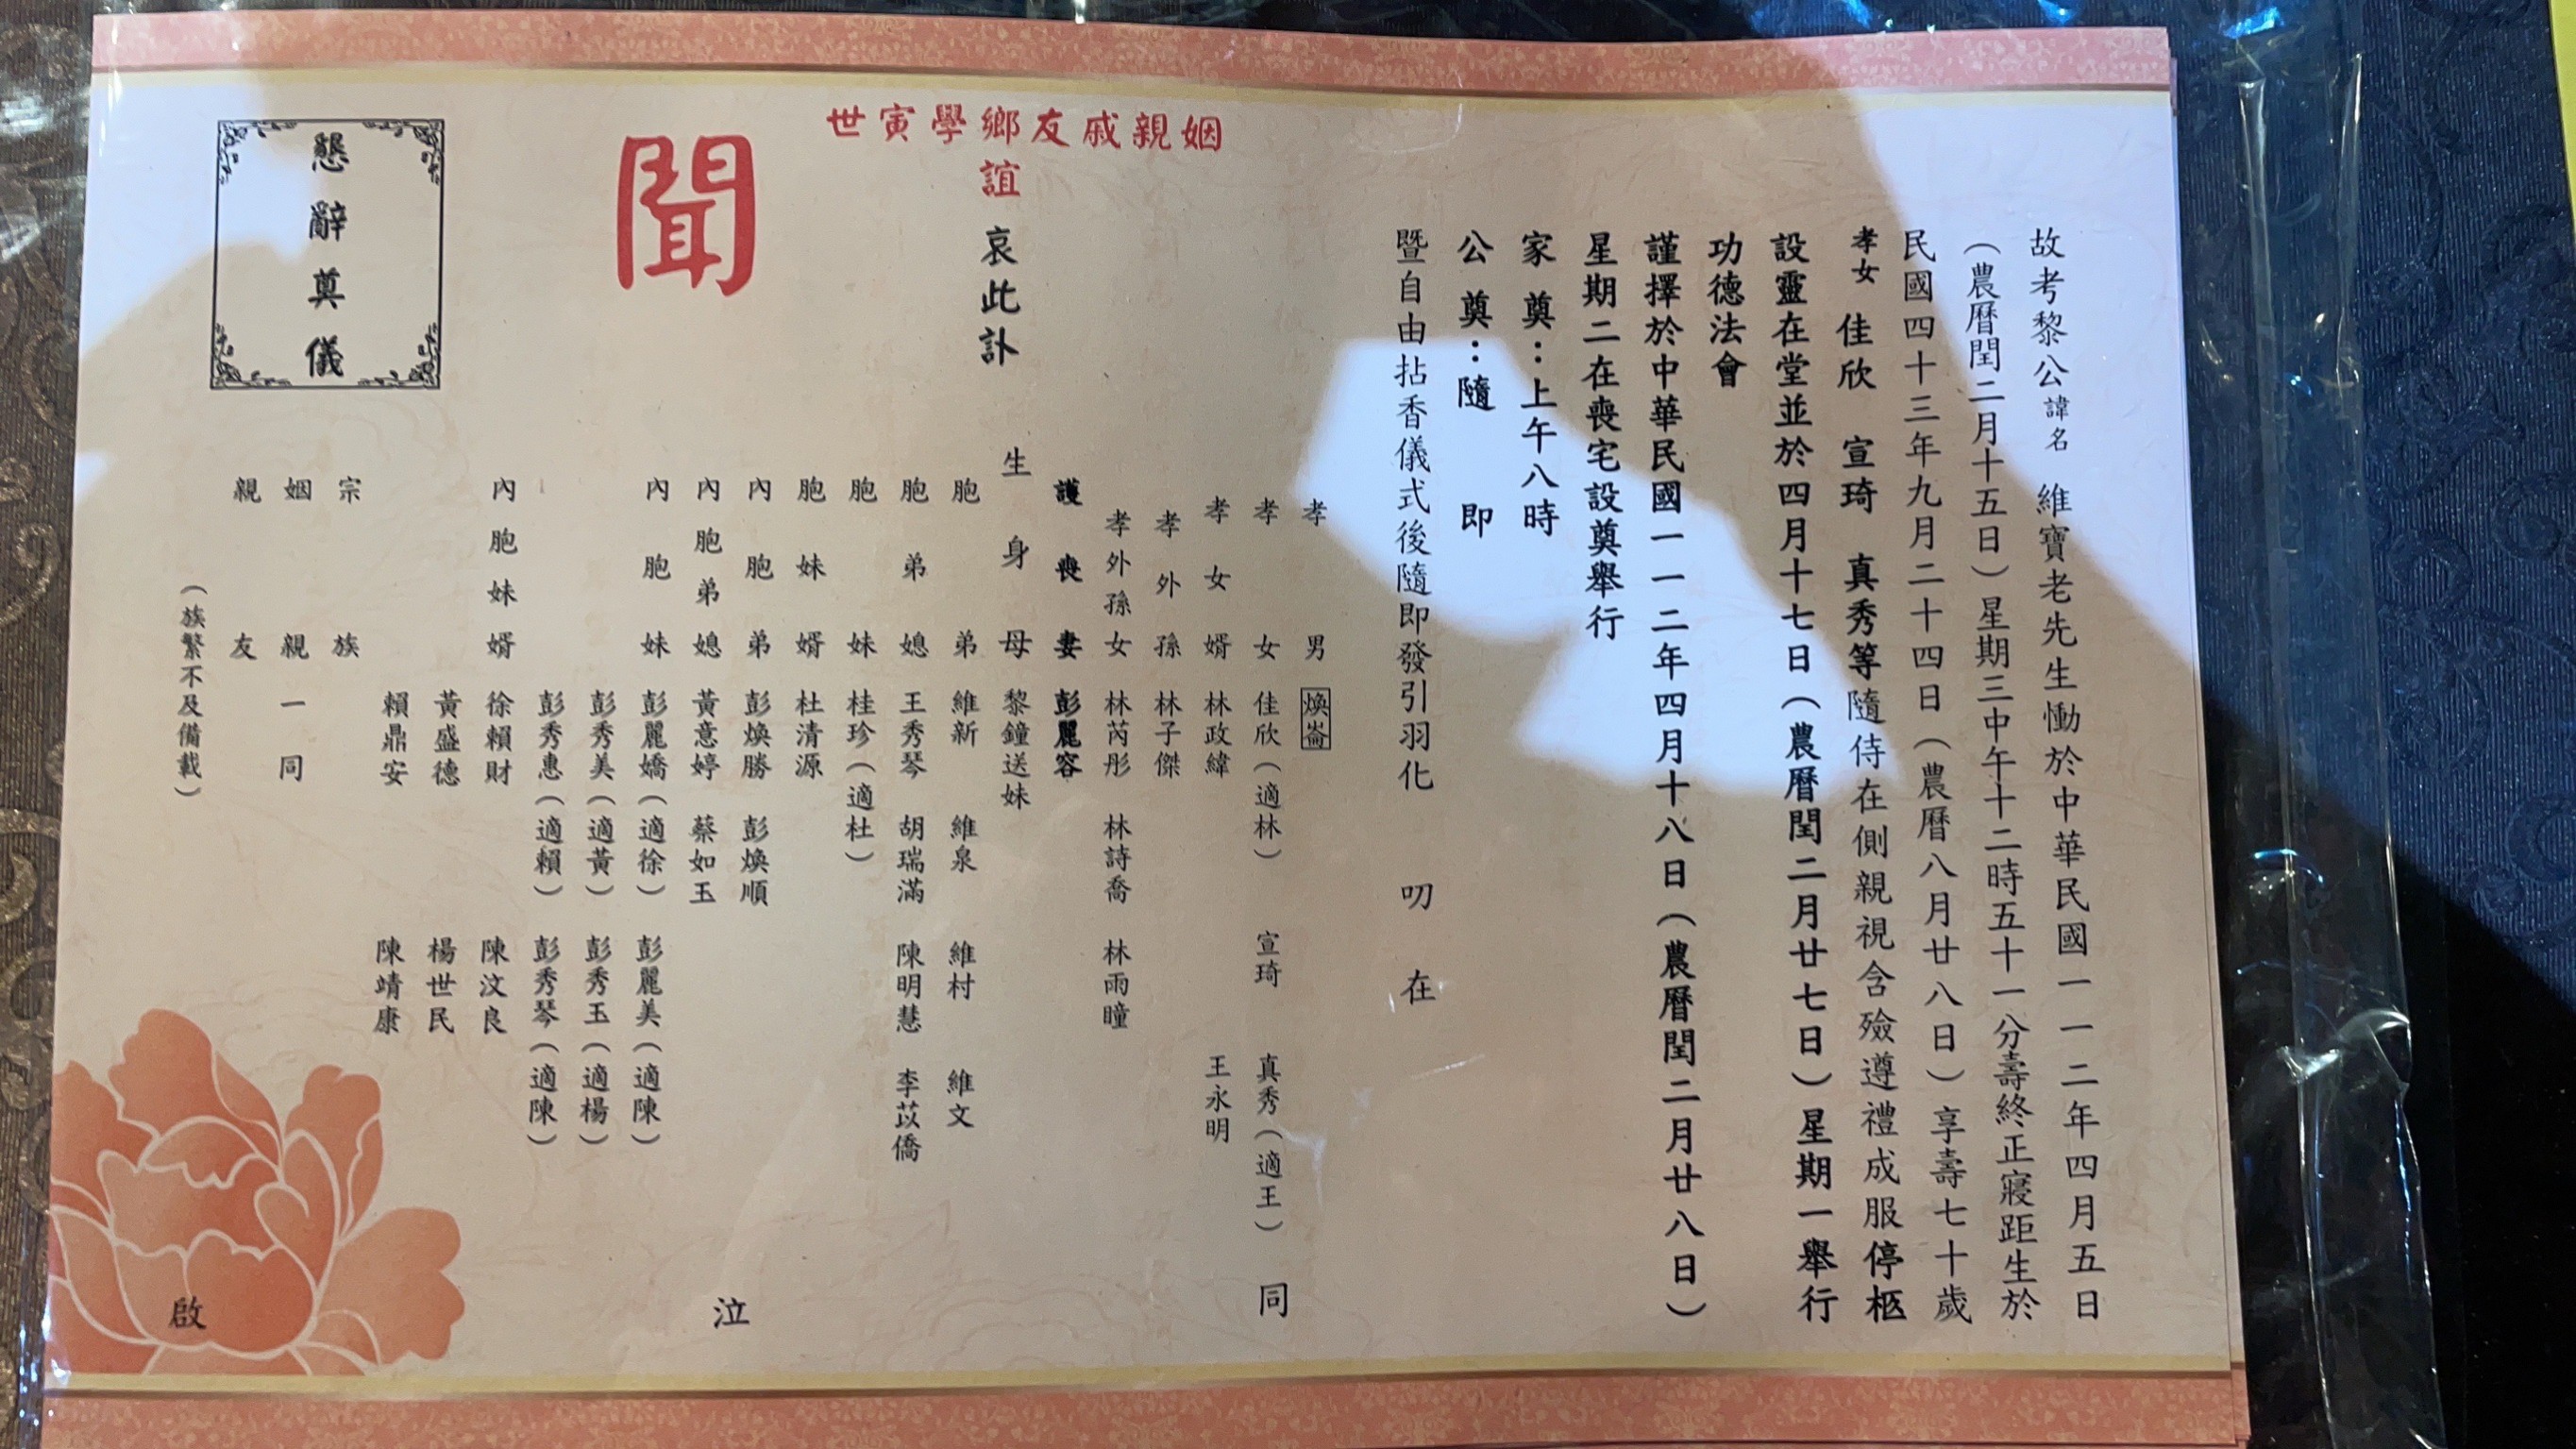 故考黎公諱名 維寶老先生慟於中華民國一一二年四月五日
（農曆閏二月十五日）星期三中午十二時五十一分壽終正寢距生於
民國四十三年九月二十四日（農曆八月廿八日）享壽七十歲
孝女 佳欣 宣琦 真秀等隨侍在側親視含殮遵禮成服停柩
設靈在堂並於四月十七日（農曆閏二月廿七日）星期一舉行
功德法會
謹擇於中華民國一一二年四月十八日（農曆閏二月廿八日）
星期二在喪宅設奠舉行
家奠：上午八時
公奠：隨即
暨自由拈香儀式後隨即發引羽化 叨在
世寅學鄉友戚親姻
誼 哀此訃
聞
孝男 煥崙
孝女 佳欣（適林） 宣琦 真秀（適王） 同
孝女婿 林政緯 王永明
孝外孫 林子傑
孝外孫女 林芮彤 林詩喬 林雨瞳
護喪妻 彭麗容
生身母 黎鐘送妹
胞弟 維新 維泉 維村 維文
胞弟媳 王秀琴 胡瑞滿 陳明慧 李苡僑
胞妹 桂珍（適杜）
胞妹婿 杜清源
內胞弟 彭煥勝 彭煥順 泣
內胞弟媳 黃意婷 蔡如玉
內胞妹 彭麗嬌（適徐） 彭麗美（適陳）
彭秀美（適黃） 彭秀玉（適楊）
彭秀惠（適賴） 彭秀琴（適陳）
內胞妹婿 徐賴財 陳汶良
黃盛德 楊世民
賴鼎安 陳靖康
宗族
姻親一同
親友
（族繁不及備載） 啟
懇辭奠儀